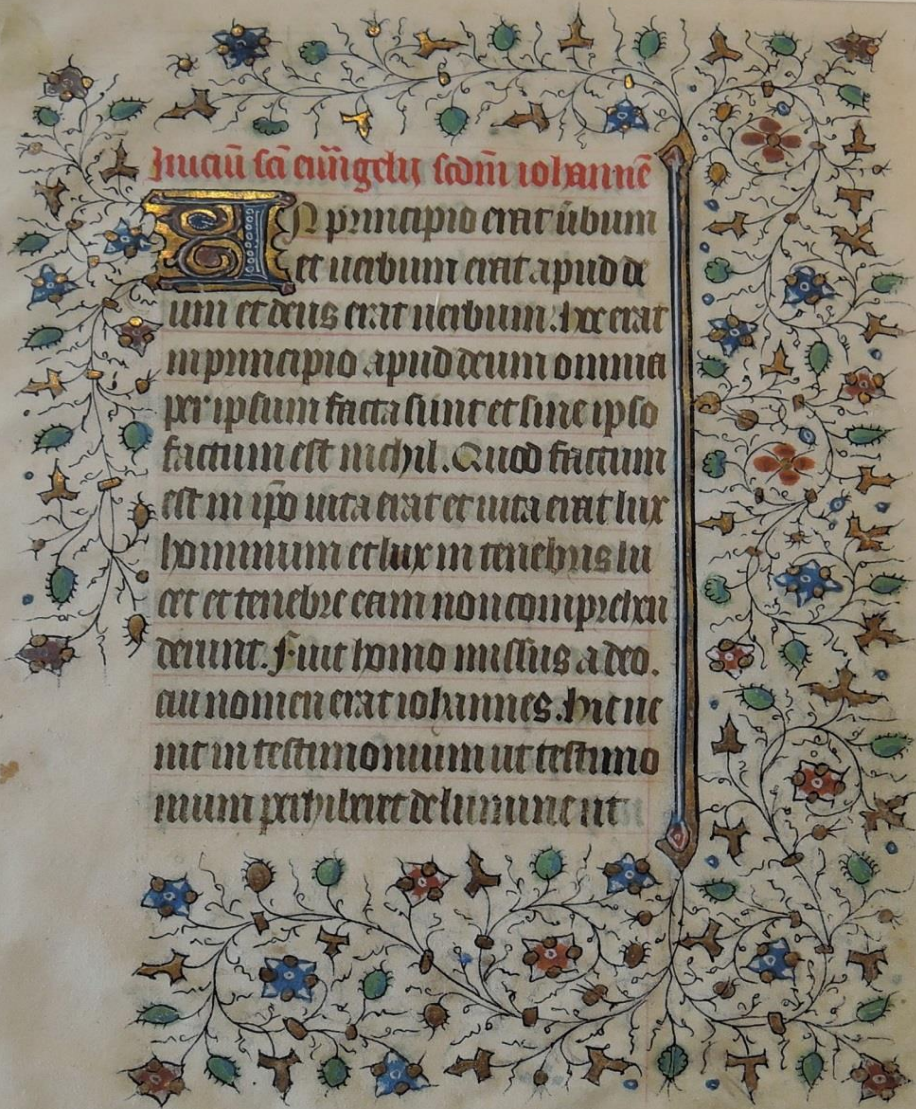 Iniciū sc̄i euāngelij scdm̄ iohannē
IN principio erat ūbum
et uerbum erat apud de
um et deus erat uerbum. hoc erat
in principio apud deum omnia
per ipsum facta sunt et sine ipso
factum est nichil. Quod factum
est in ip̄o uita erat et uita erat lux
hominum et lux in tenebris lu
cet et tenebre eam non comprehen
derunt. Fuit homo missus a deo.
cui nomen erat iohannes. hic ue
nit in testimonium ut testimo
nium perhiberet de lumine ut